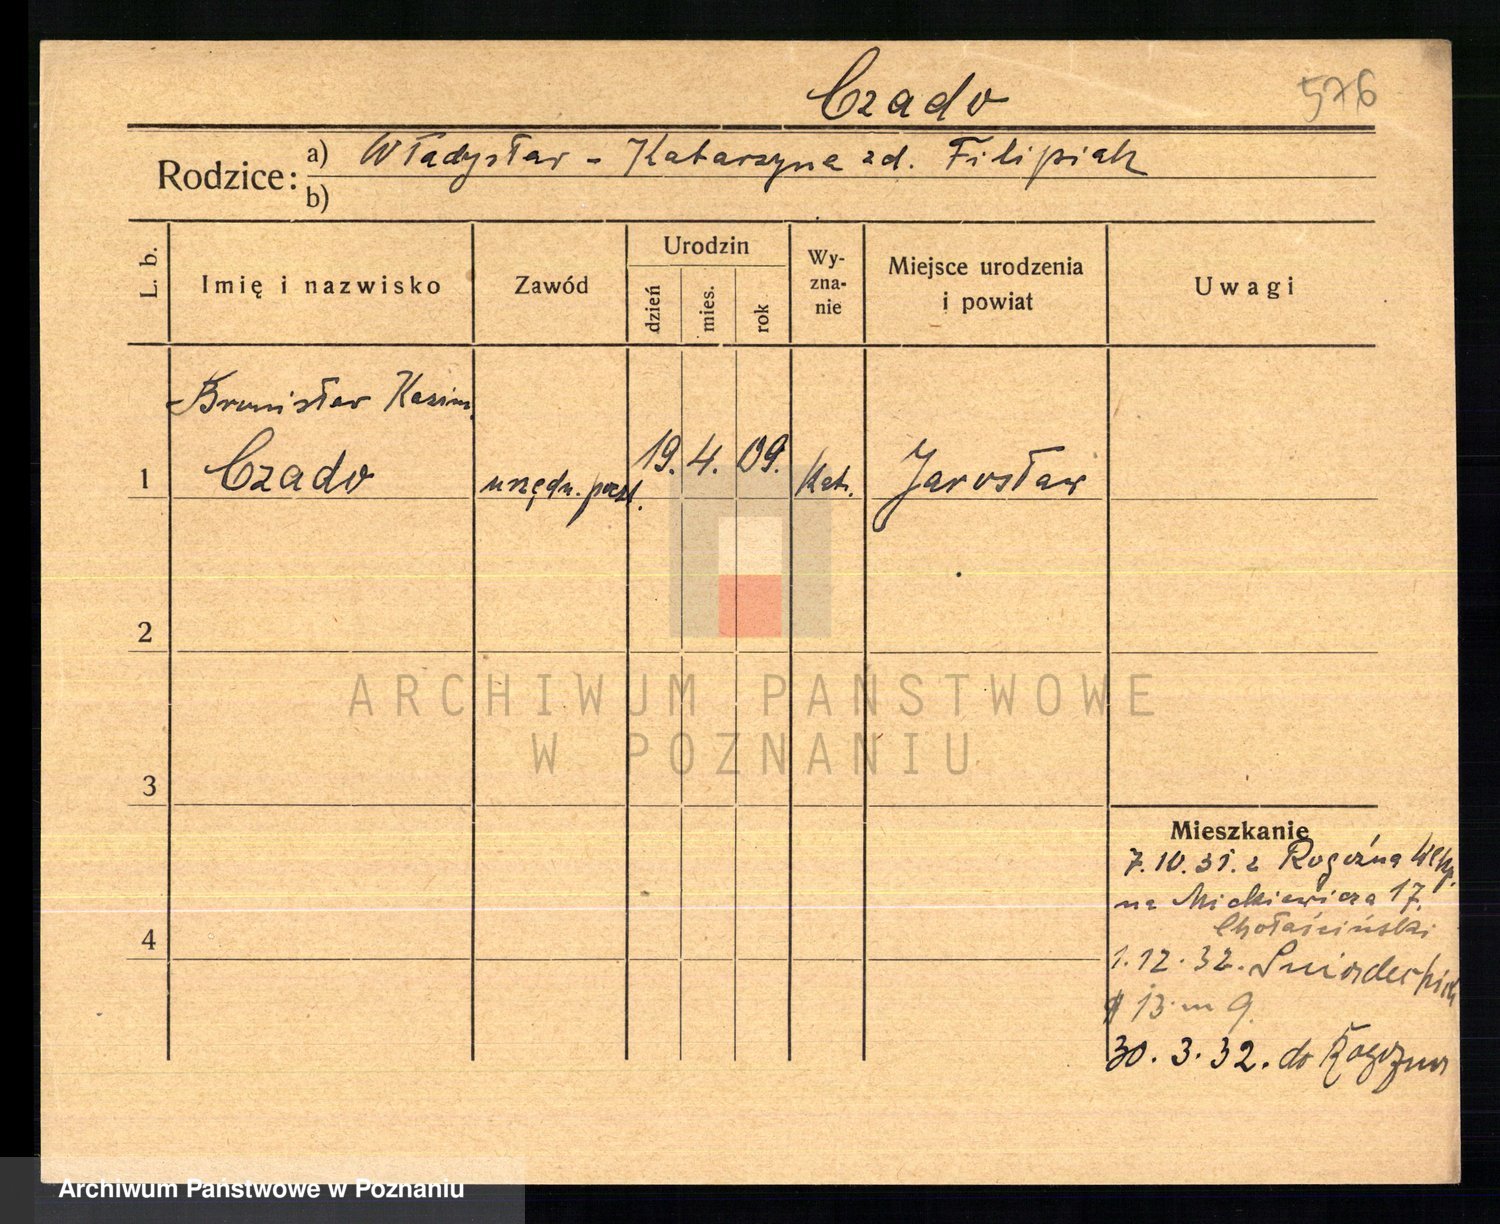 Czado
576
Rodzice: a) Władysław - Katarzyna zd. Filipiak
b)
L. b.
Imię i nazwisko
Zawód
Urodzin
dzień
mies.
rok
Wy-
zna-
nie
Miejsce urodzenia
i powiat
Uwagi
Bronisław Kazim.
1 Czado urzędn. poczt. 19. 4. 09. Kat. Jarosław
2
3
4
Mieszkanie
7.10.31. z Rogoźna Wlkp.
na Mickiewicza 17.
1.12.32.
13 m 9.
30.3.32. do Rogozna
ARCHIWUM PAŃSTWOWE
W POZNANIU
Archiwum Państwowe w Poznaniu